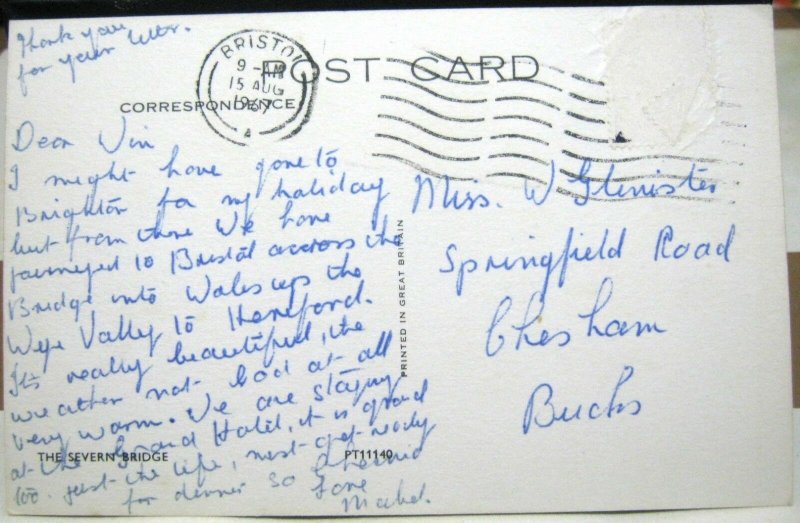 Thank you
for your letter.
BRISTOL
9 - AM
15 AUG
1967
A
POST CARD
CORRESPONDENCE
Dear Win
I might have gone to
Brighton for my holiday
but from there We have
journeyed to Bristol across the
Bridge into Wales up the
Wye Valley to Hereford.
Its really beautiful, the
weather not bad at all
very warm. We are staying
at the Grand Hotel, it is grand
too. Just the life, must get ready
for dinner so
Love
Mabel.
Miss. W Glenister
Springfield Road
Chesham
Bucks
PRINTED IN GREAT BRITAIN
THE SEVERN BRIDGE
PT11140